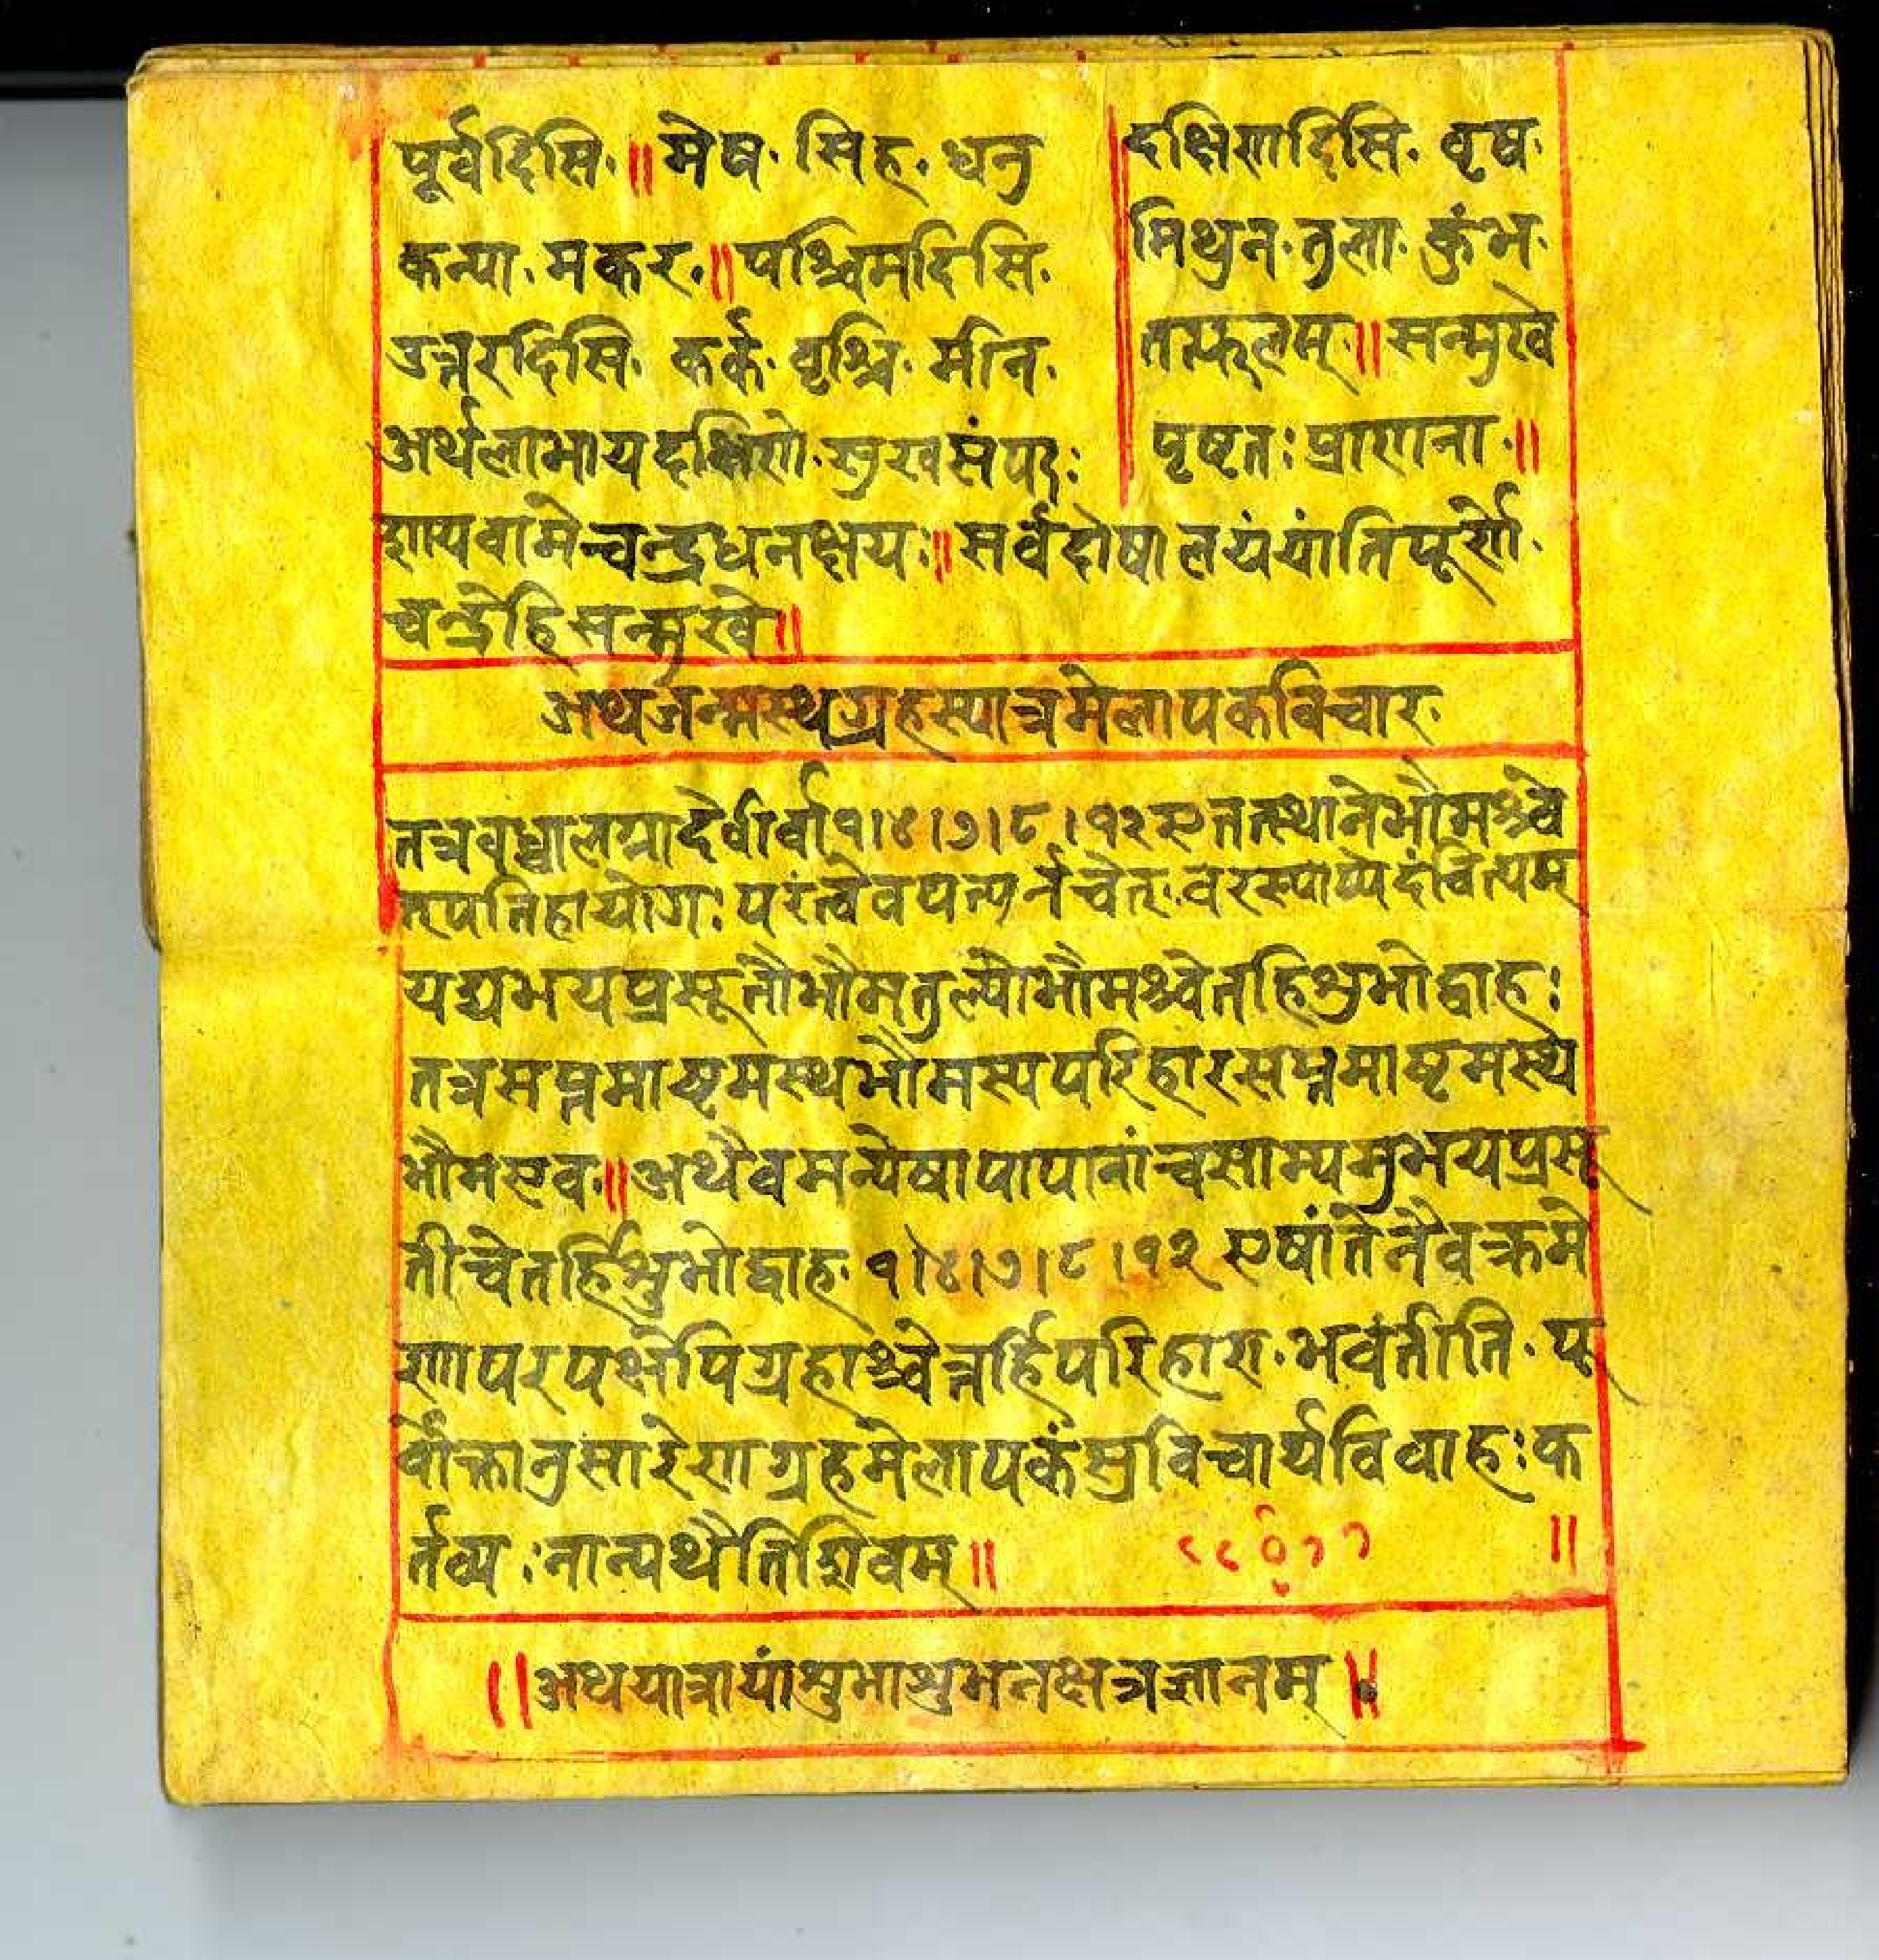 पूर्वदिसि॰॥मेष॰ सिह॰ धनु दक्षिणदिसि॰ वृष॰
कन्या॰ मकर॰॥पश्चिमदिसि॰ मिथुन॰ तुला॰ कुंभ॰
उत्तरदिसि॰ कर्क॰ वृश्चि॰ मीन॰ तत्फलम्॥सन्मुखे
अर्थलाभायदक्षिणे॰सुखसंपदः पृष्टतः प्राणना॰॥
शायवामेचन्द्रधनक्षयः॥सर्वदोषालयंयांतिपूर्णे॰
चन्द्रेहिसन्मुखे॥
अथजन्मस्थग्रहस्यात्रमेलापकविचार॰
तत्रवध्वालग्नादेर्वार्वा१।४।७।८।१२एतत्स्थानेभौमश्चे
त्पपतिहायोगः परंत्वेवपत्यर्नचेत्॰वरस्याप्येदंवित्यम्
यद्यभयप्रसूतौभौमतुल्यौभौमश्चेतहिशुभोद्वाहः
तत्रसप्तमाष्टमस्थभौमस्यपरिहारसप्तमाष्टमस्थे
भौमएव॰॥अथैवमन्येषापापानांचसाम्यमुभयप्रसू
तीचेतर्हिशुभोद्वाह॰ १।४।७।८।१२ एषांतेनैवक्रमे
णपरपक्षेपिग्रहाश्चेत्तर्हिपरिहारा॰भवंतीति॰पू
र्वोक्तानुसारेणग्रहमेलापकंसुविचार्यविवाहःक
र्तव्यःनान्यथैतिशिवम्॥ ॥
॥अथयात्रायांशुभाशुभनक्षत्रज्ञानम्॥